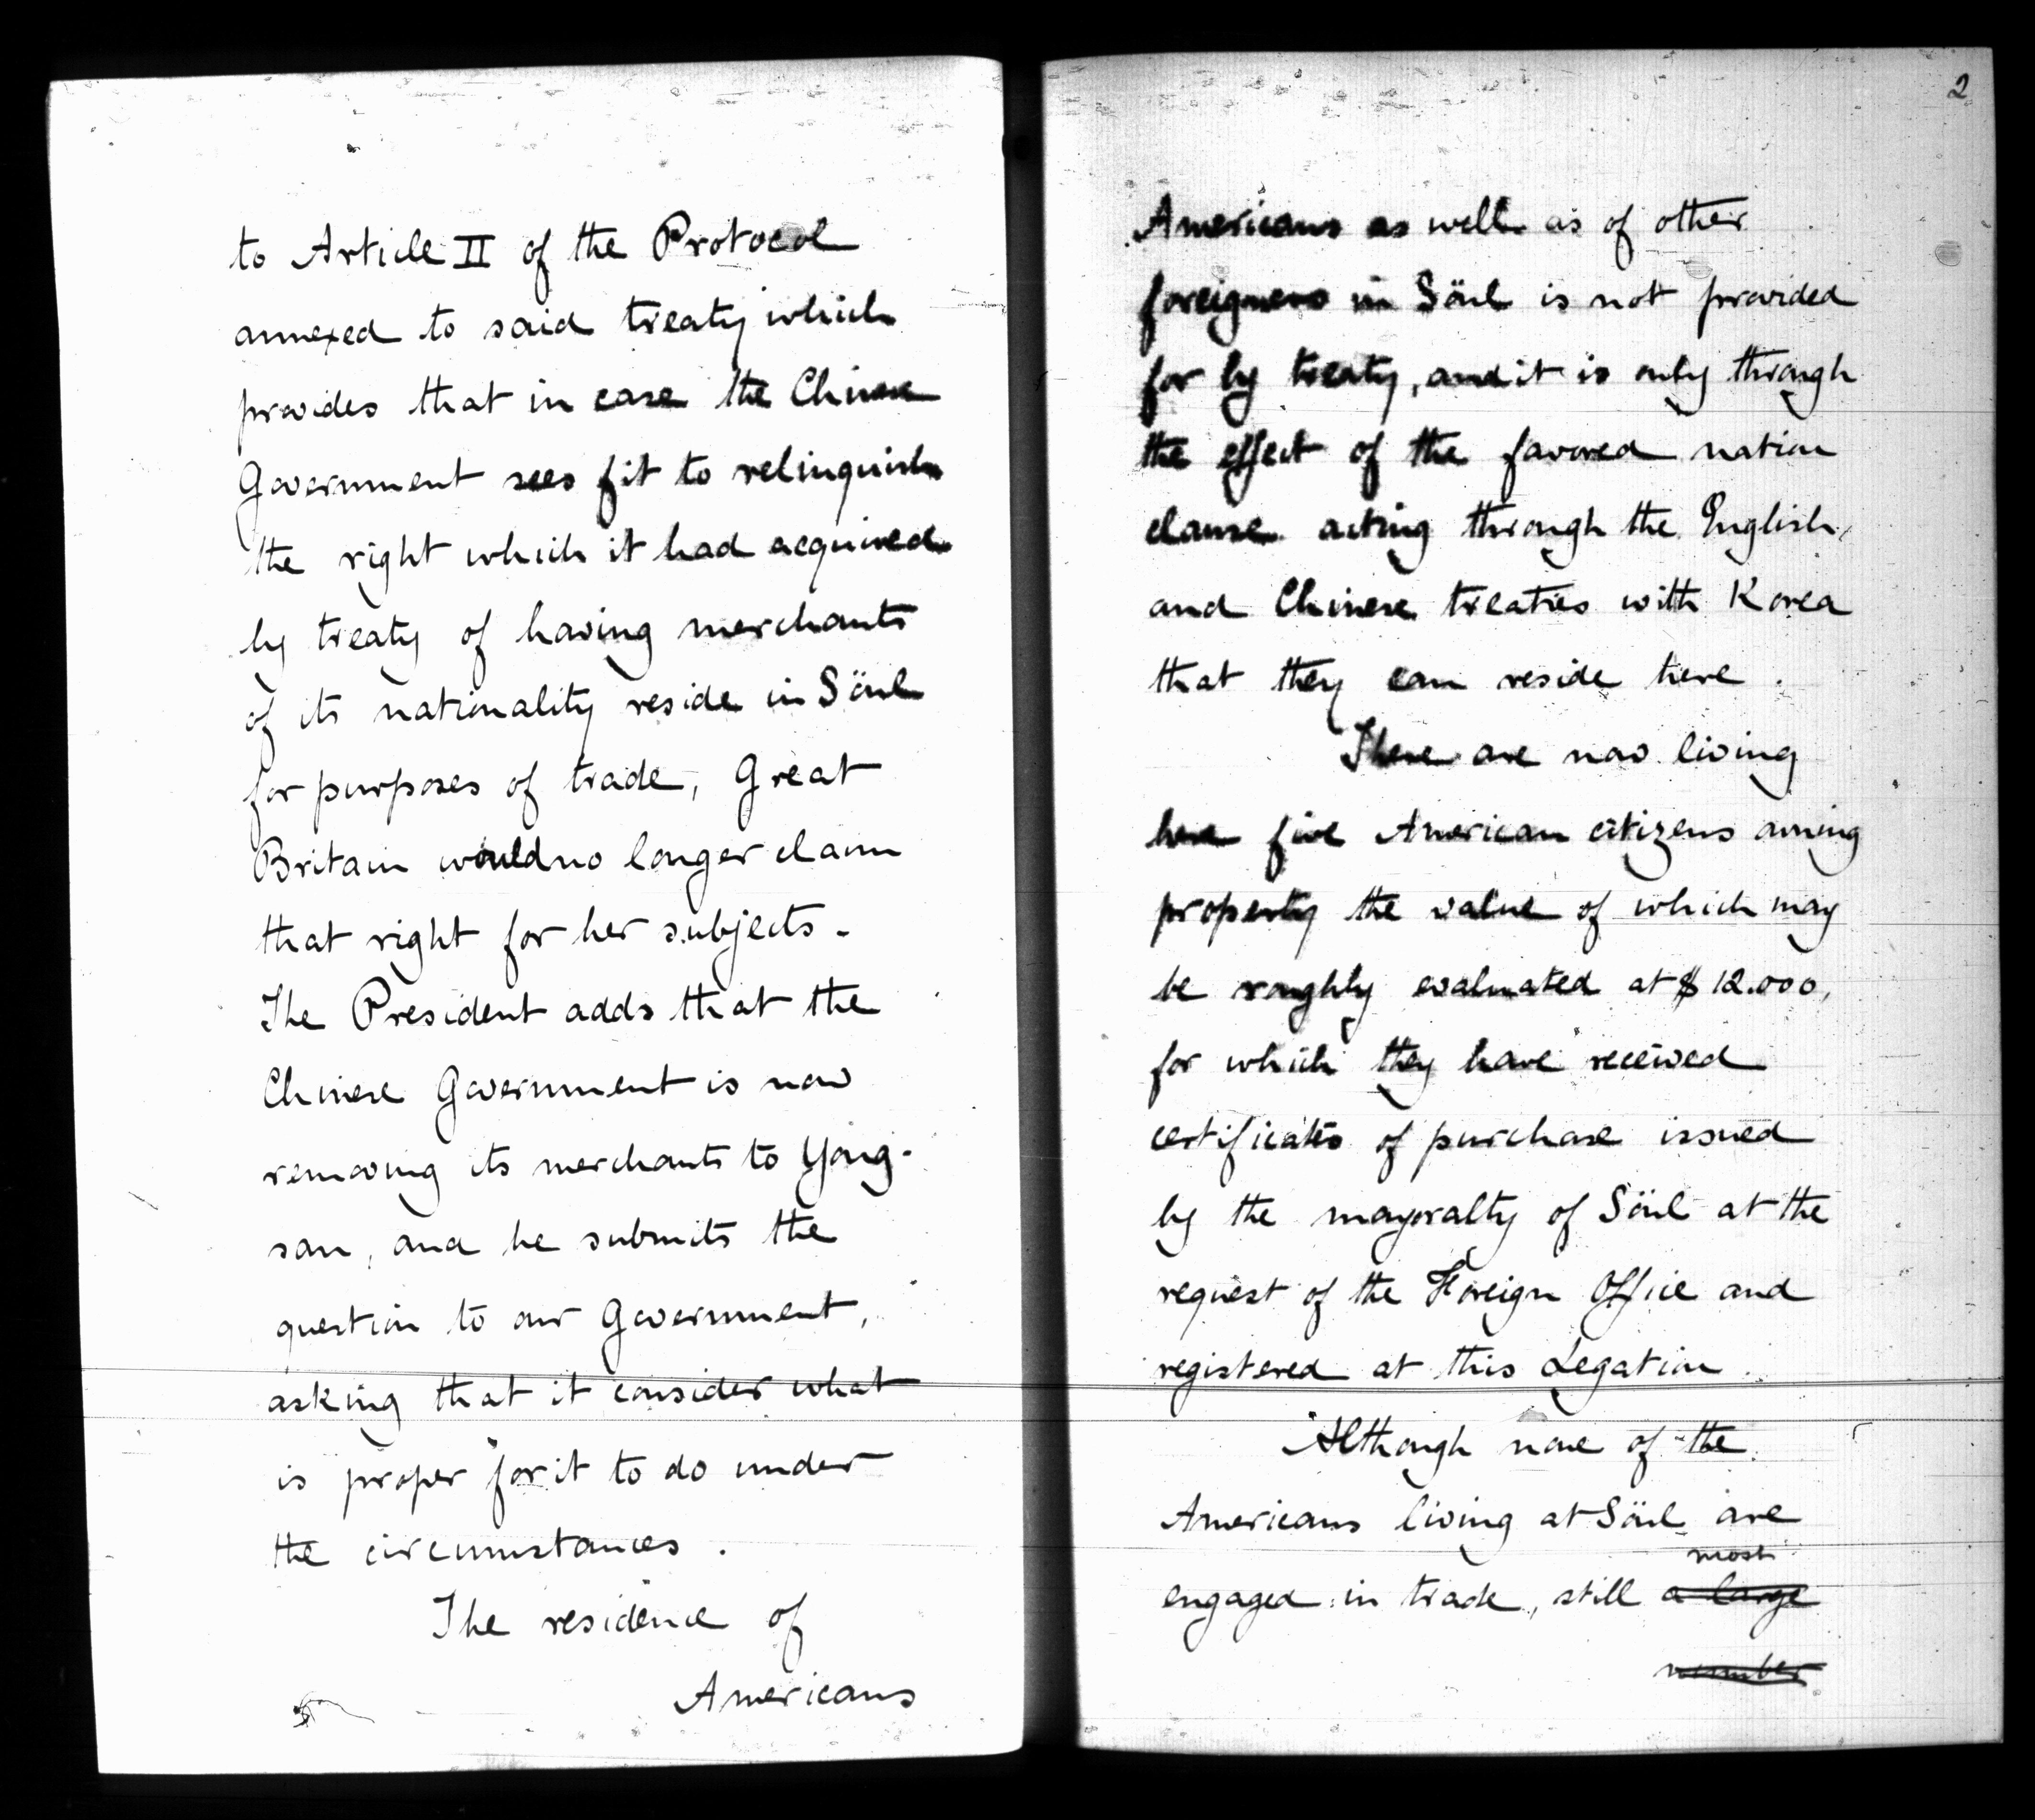 to Article II of the Protocol
annexed to said treaty which
provides that in case the Chinese
Government sees fit to relinquish
the right which it had acquired
by treaty of having merchants
of its nationality reside in Söul
for purposes of trade, Great
Britain would no longer claim
that right for her subjects.
The President adds that the
Chinese Government is now
removing its merchants to Yong-
san, and he submits the
question to our Government,
asking that it consider what
is proper for it to do under
the circumstances.
The residence of
Americans
2
Americans as well as of other
foreigners in Söul is not provided
for by treaty, and it is only through
the effect of the favored nation
clause acting through the English,
and Chinese treaties with Korea
that they can reside here.
There are now living
here five American citizens owning
property the value of which may
be roughly evaluated at $12.000,
for which they have received
certificates of purchase issued
by the mayoralty of Söul at the
request of the Foreign Office and
registered at this Legation.
Although none of the
Americans living at Söul are
most
engaged in trade, still a large
number